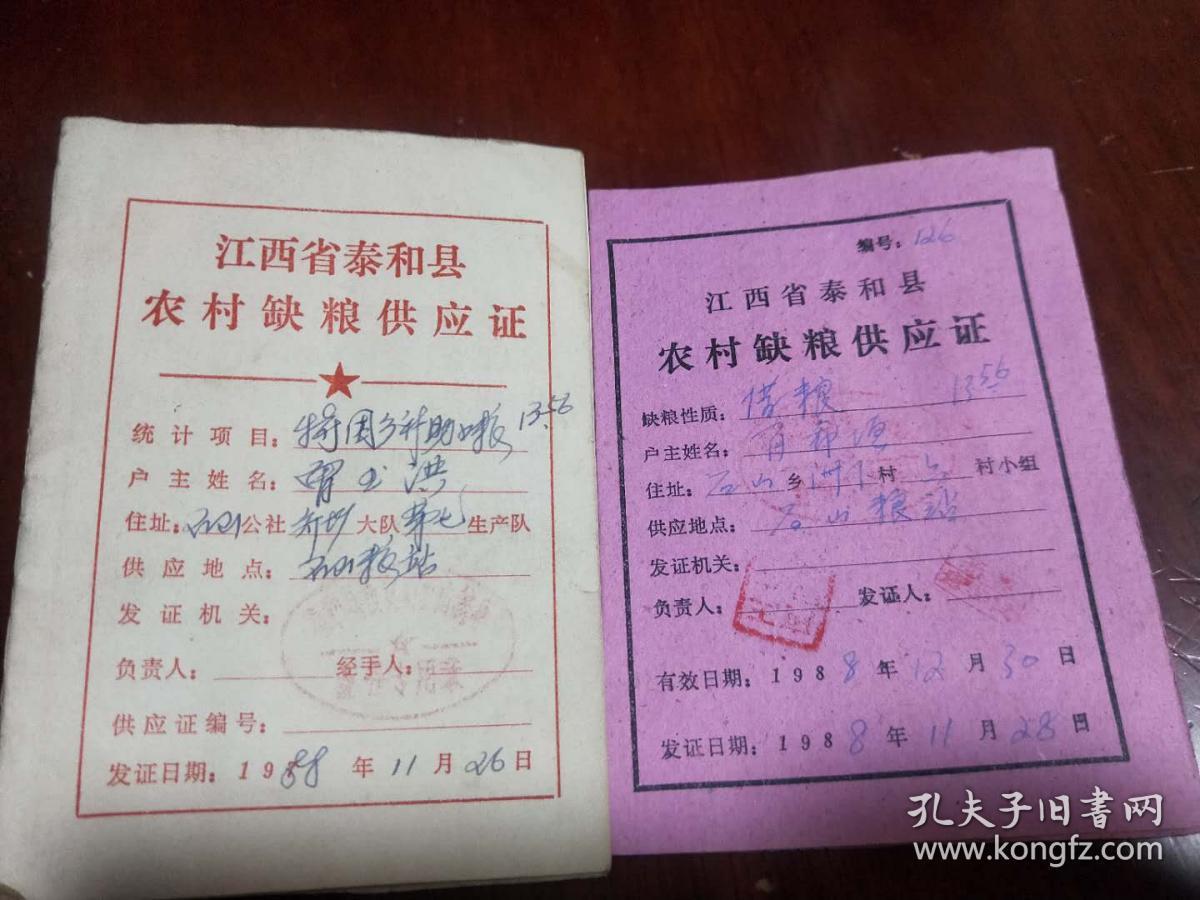 江西省泰和县
农村缺粮供应证
统计项目：特困乡补助口粮 13.56
户主姓名：洪
住址：石山公社 大队 第七 生产队
供应地点：石山粮站
发证机关：
负责人： 经手人：
供应证编号：
发证日期：1988年11月26日
编号：126
江西省泰和县
农村缺粮供应证
缺粮性质：借粮 13.56
户主姓名：肖
住址：石山乡 村 六 村小组
供应地点：石山粮站
发证机关：
负责人： 发证人：
有效日期：1988年12月30日
发证日期：1988年11月28日
孔夫子旧书网
www.kongfz.com